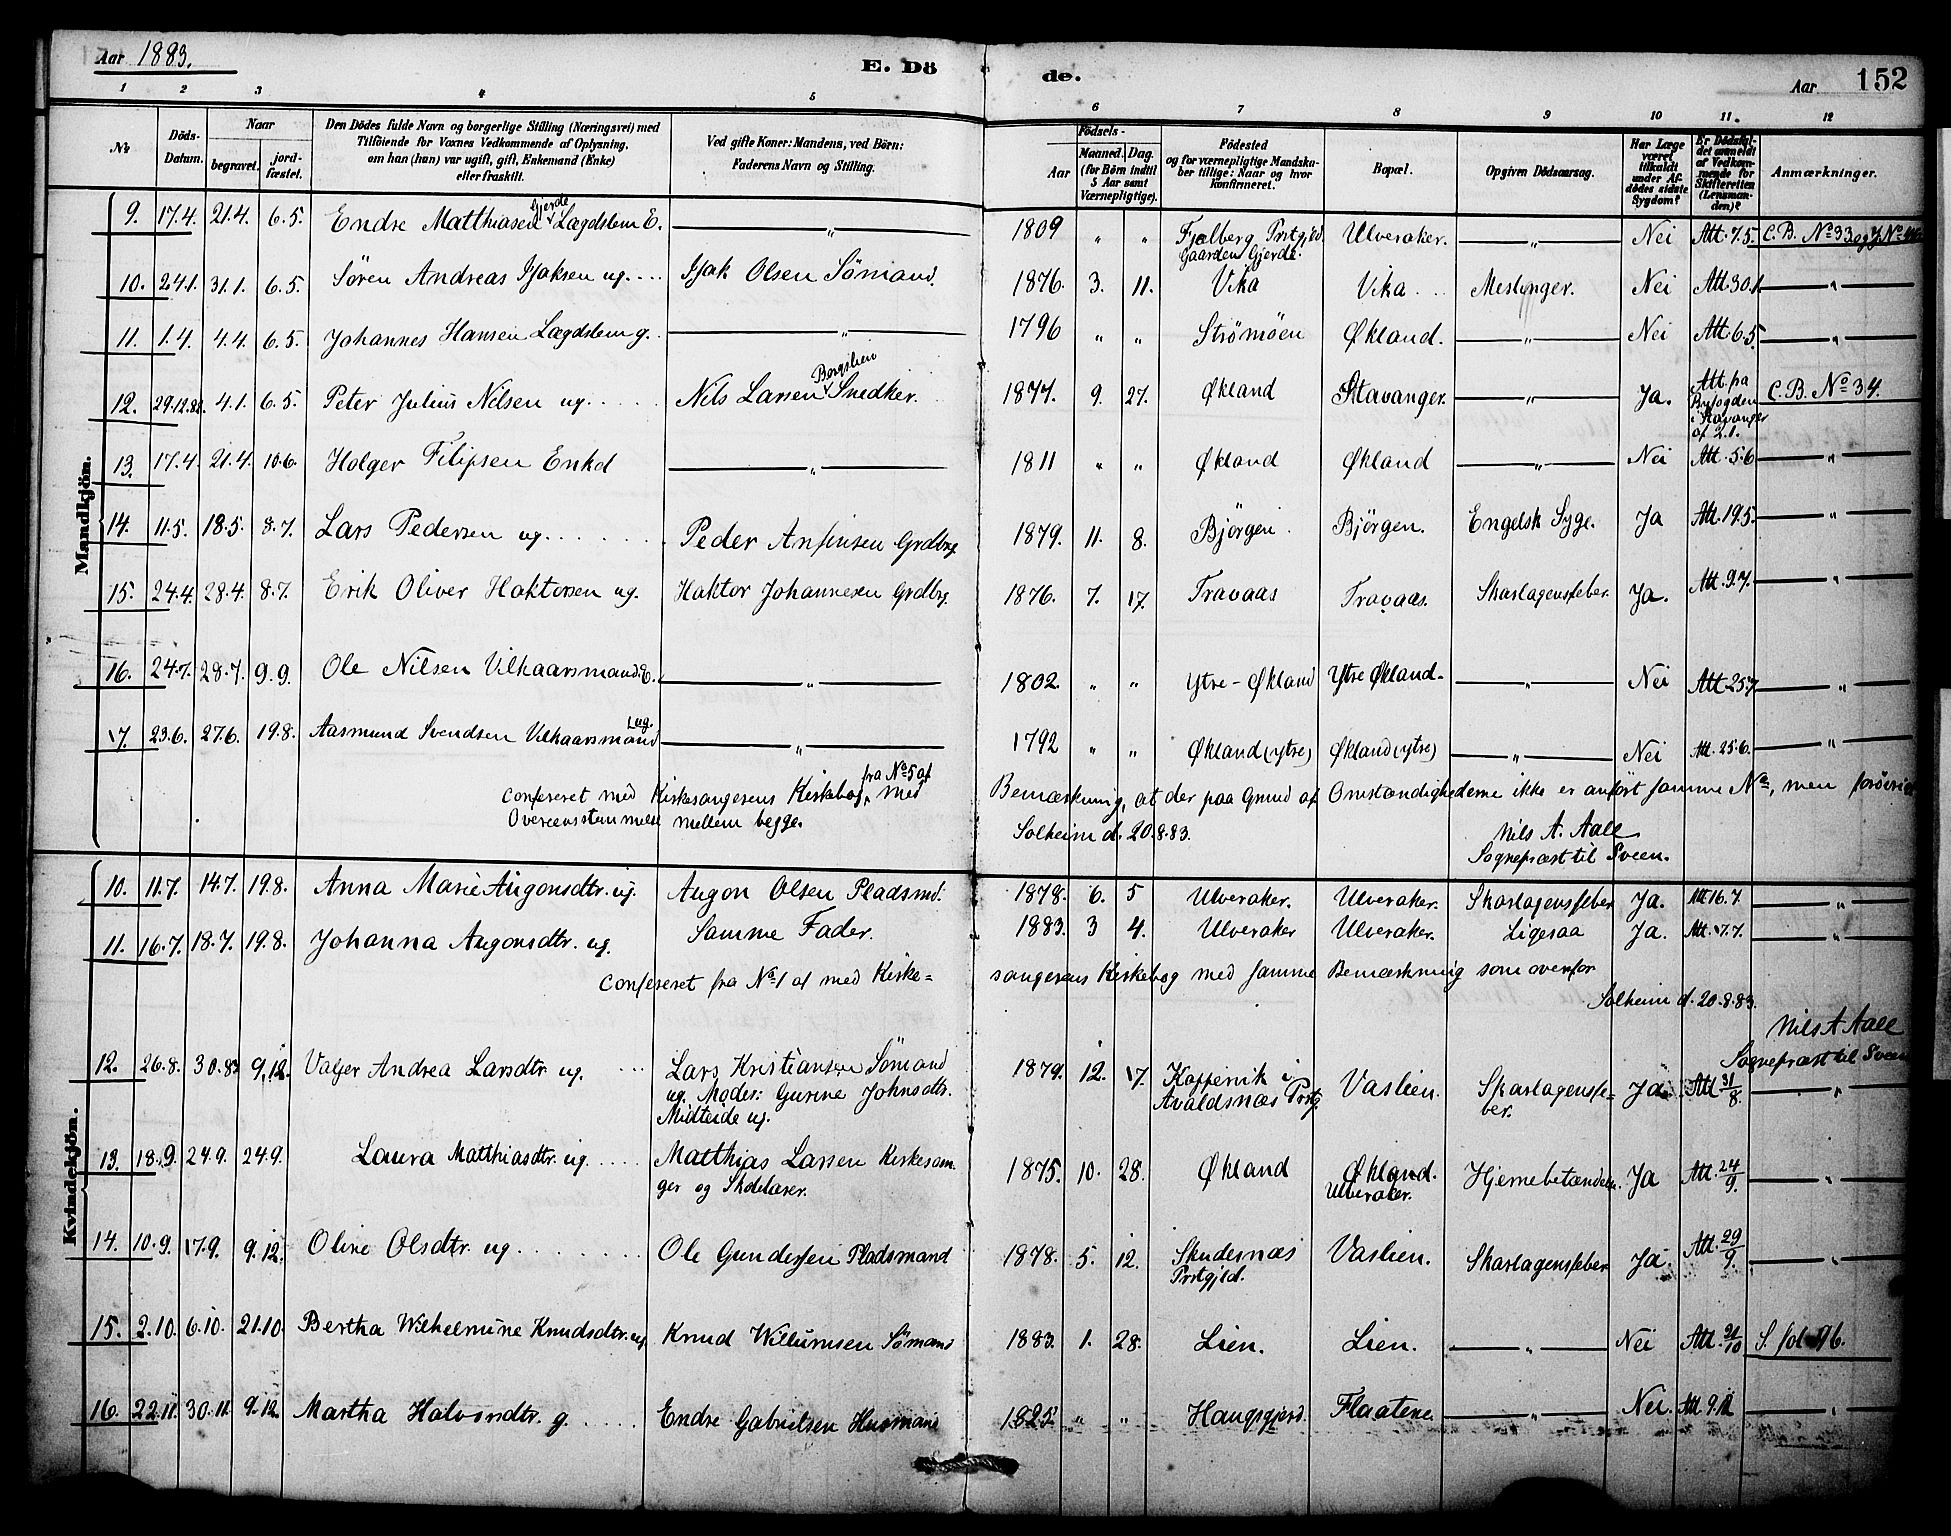 Aar 1883.
E. Dö de.
Aar 152
1 2 3 4 5 6 7 8 9 10 11. 12
No
Döds-Datum.
Naar begravet. jord-fæstet.
Den Dödes fulde Navn og borgerlige Stilling (Næringsvei) med
Tilföiende for Voxnes Vedkommende af Oplysning,
om han (hun) var ugift, gift, Enkemand (Enke)
eller fraskilt.
Ved gifte Koner: Mandens, ved Börn:
Faderens Navn og Stilling.
Födsels-
Aar Maaned. Dag.
(for Börn indtil
5 Aar samt
Værnepligtige).
Födested
og for værnepligtige Mandsku-
ber tillige: Naar og hvor
konfirmeret.
Bopæl.
Opgiven Dödsaarsag.
Har Læge
været
tilkaldt
under Af-
dödes sidste
Sygdom?
Er Dödsfal-
det anmeldt
af Vedkom-
mende for
Skifteretten
(Lensman-
den)?
Anmærkninger.
Mandkjön.
9. 17.4. 21.4. 6.5. Endre Matthiasen Gjerde Lægdslem E. " 1809 " " Fjelberg Prstgjld. Gaarden Gjerde. Ulveraker. " Nei Att. 7.5. C.B. No 33
10. 24.1. 31.1. 6.5. Sören Andreas Isaksen ug. Isak Olsen Sömand. 1876. 3. 11. Vika Vika Meslinger. Nei Att. 30.1. "
11. 1.4. 4.4. 6.5. Johannes Hansen Lægdslem g. " 1796 " " Strömöen Økland. " Nei Att. 6.5. "
12. 29.12.82. 4.1. 6.5. Peter Julius Nilsen ug. Nils Larsen Bergslien Snedker. 1877. 9. 27. Økland Stavanger. " Ja. Att. fra Byfogden i Stavanger af 2.1. C.B. No 34.
13. 17.4. 21.4. 10.6. Holger Filipsen Enkd " 1811 " " Økland Økland " Nei Att. 5.6 "
14. 11.5. 18.5. 8.7. Lars Pedersen ug. Peder Anfinsen Grdbrg. 1879. 11. 8. Björgen Björgen. Engelsk Syge. Ja Att. 19.5. "
15. 24.4. 28.4. 8.7. Erik Oliver Haktorsen ug. Haktor Johannesen Grdbrg. 1876. 7. 17. Travaas Travaas. Skarlagensfeber. Ja. Att. 9.7. "
16. 24.7. 28.7. 9.9. Ole Nilsen Vilkaarsmand. E. " 1802. " " Ytre-Økland Ytre Økland " Nei Att. 25.7 "
17. 23.6. 27.6. 19.8. Aasmund Svendsen Vilkaarsmand ug. " 1792 " " Økland (ytre) Økland (ytre) " Nei Att. 25.6. "
confereret med Kirkesangerens Kirkebog, fra No 5 af med Bemærkning, at der paa Grund af Omstændighederne ikke er anfört samme No, men forövrigt
Overensstemmelse mellem begge. Solheim d. 20.8.83. Nils A. Aall
Sognepræst til Sveen.
Kvindekjön.
10. 11.7. 14.7. 19.8. Anna Marie Augonsdtr. ug. Augon Olsen Pladsmd. 1878. 6. 5 Ulveraker. Ulveraker. Skarlagensfeber Ja. Att 16.7. "
11. 16.7. 18.7. 19.8. Johanna Augonsdtr. ug. Samme Fader. 1883. 3 4. Ulveraker Ulveraker. Ligesaa Ja. Att. 17.7. "
confereret fra No 1 af med Kirke= sangerens Kirkebog med samme Bemærkning som ovenfor
Solheim d. 20.8.83.
Nils A Aall
Sognepræst til Sveen
12. 26.8. 30.83 9.12. Valger Andrea Larsdtr ug. Lars Kristiansen Sömand ug. Moder: Gurine Johnsdtr. Midteide ug. 1879. 12. 17. Koppervik i Avaldsnæs Prstg. Vaslien. Skarlagensfe-ber. Ja Att 31/8. "
13. 18.9. 24.9. 24.9. Laura Matthiasdtr. ug. Matthias Larsen Kirkesan-ger og Skolelærer. 1875. 10. 28. Økland Økland. Ulveraker. Hjernebetændelse. Ja Att. 24/9. "
14. 10.9. 17.9. 9.12. Oline Olsdtr. ug Ole Gundersen Pladsmand 1878. 5. 12. Skudesnæs Prstgjld. Vaslien. Skarlagensfeber Ja. Att. 29/9. "
15. 2.10. 6.10. 21.10. Bertha Wilhelmine Knudsdtr. ug Knud Willumsen Sömand 1883. 1. 28. Lien. Lien. " Nei Att. 21/10 S. fol 96.
16. 22.11. 30.11 9.12. Martha Halvorsdtr. g. Endre Gabrielsen Husmand 1825. " " Haugsgjerd. Flaatene. " Nei. Att 9.12 "